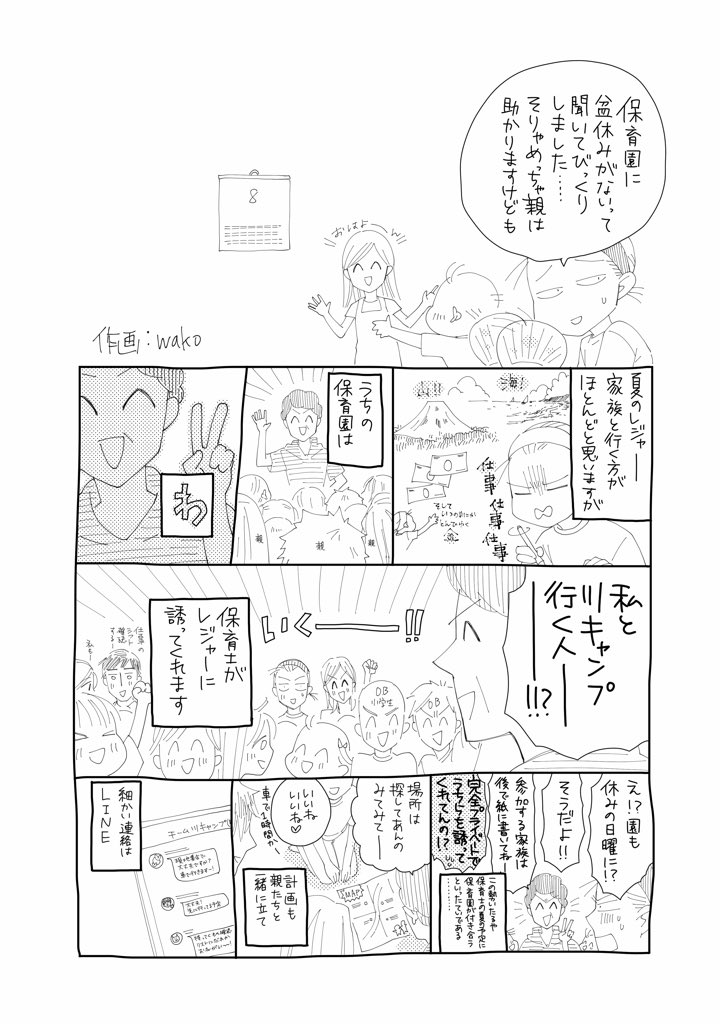 保育園に
盆休みがないって
聞いてびっくり
しました……
そりゃめっちゃ親は
助かりますけども
おはよーん
作画：wako
夏のレジャー
家族と行く方が
ほとんどと思いますが
海！
山！！
仕事
仕事
仕事
仕事
そして
いつの間にか
とんでいく
うちの
保育園は
親
親
親
わ
私と
川キャンプ
行く人ー
ーー!!?
いくーー!!
保育士が
レジャーに
誘ってくれます
仕事の
シフト
確認
する
私も
OB
小学生
OB
え!?園も
休みの日曜に!?
そうだよ!!
参加する家族は
後で紙に書いてね
完全プライベートで
うちらを誘って
くれてんの!?
この勢いたるや
保育士の夏の予定に
保育園が付き合う
といったていである
……
場所は
探してあんの
みてみてー
いいね
いいね♡
車で1時間かー
MAP
計画も
親たちと
一緒に立て
細かい連絡は
LINE
チーム川キャンプ